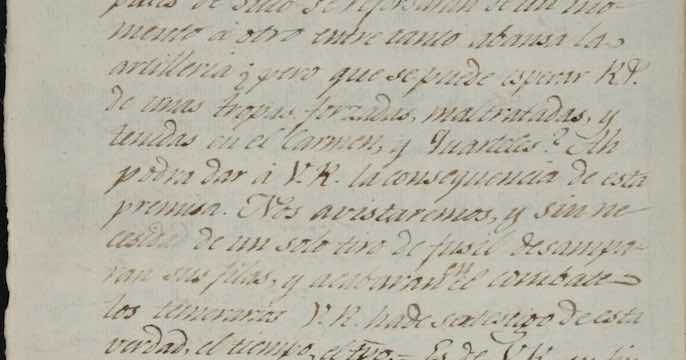 de sitio se reforsaran de un mo-
mento á otro entre tanto abansa la
artilleria; pero que se puede esperar R.P.
de unas tropas forzadas, maltratadas, y
tenidas en el Carmen, y Quarteles? Ah
podra dar á V.R. la consequencia de esta
premisa. Nos avistaremos, y sin ne-
cesidd. de un solo tiro de fusil desampa-
ran sus filas, y acabaran en el combate
los temerarios V.R. hade ser testigo de esta
verdad, el tiempo, el tpo.= Es de V.R.